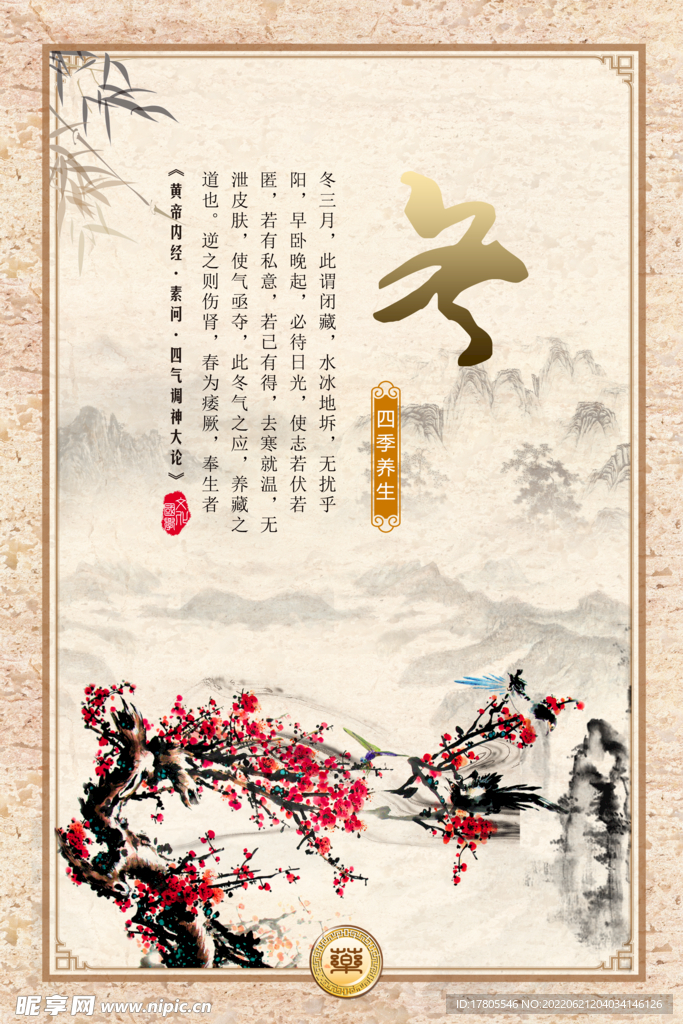 冬
四季养生
冬三月，此谓闭藏，水冰地坼，无扰乎
阳，早卧晚起，必待日光，使志若伏若
匿，若有私意，若己有得，去寒就温，无
泄皮肤，使气亟夺，此冬气之应，养藏之
道也。逆之则伤肾，春为痿厥，奉生者
《黄帝内经·素问·四气调神大论》
文化
國學
藥
昵享网 www.nipic.cn
ID:17805546 NO:20220621204034146126